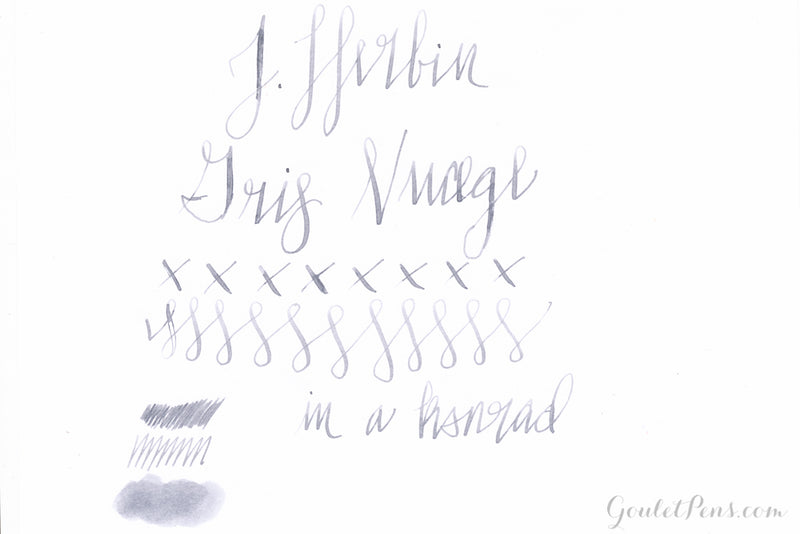 J. Herbin
Gris Nuage
x x x x x x x x
in a konrad
GouletPens.com